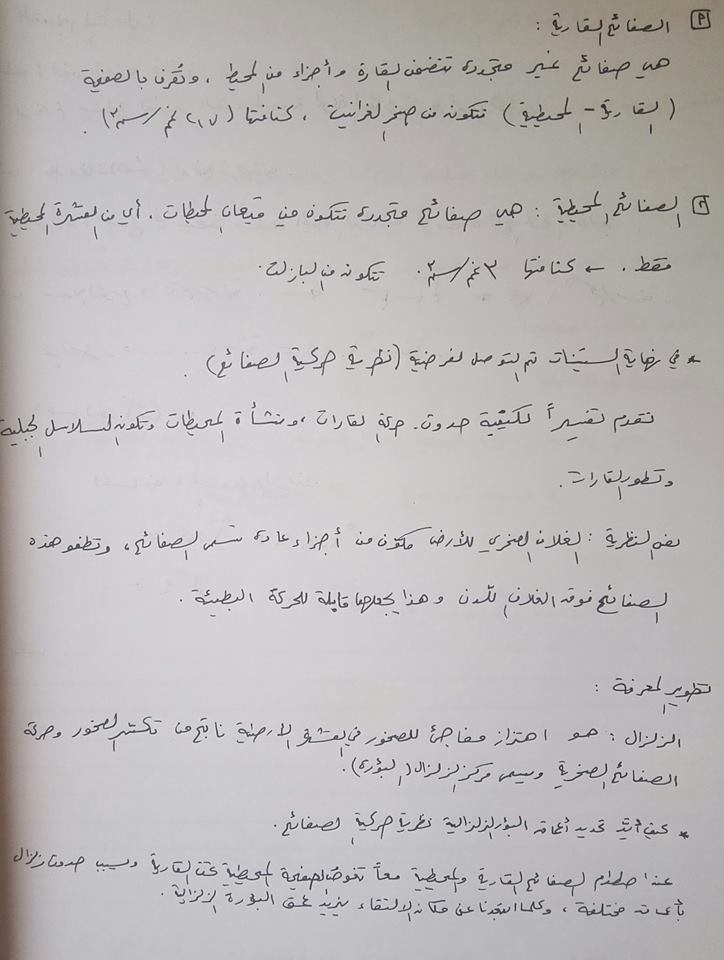 ١ الصفائح القارية :
هي صفائح غير متجددة تتضمن القارة وأجزاء من المحيط ، وتُعرف بالصفيحة
( القارية - المحيطية ) تتكون من صخر الغرانيت ، كثافتها ( ٢,٧ غم/سم٣ ) .
٢ الصفائح المحيطية : هي صفائح متجددة تتكون من قيعان المحيطات . أي من القشرة المحيطية
فقط . ← كثافتها ٣ غم/سم٣ . تتكون من البازلت .
* في نهاية الستينات تم التوصل لفرضية ( نظرية حركية الصفائح ) .
تقدم تفسيراً لكيفية حدوث . حركة القارات ، ونشأة المحيطات وتكون السلاسل الجبلية
وتطور القارات .
نص النظرية : الغلاف الصخري للأرض مكوّن من أجزاء عادة تسمى الصفائح ، وتطفو هذه
الصفائح فوق الغلاف اللدن وهذا يجعلها قابلة للحركة البطيئة .
تطوير المعرفة :
الزلزال : هو اهتزاز مفاجئ للصخور في القشرة الأرضية ناتج من تكسر الصخور وحركة
الصفائح الصخرية ويسمى مركز الزلزال ( البؤرة ) .
* كيف أيّد تحديد أعماق البؤر الزلزالية نظرية حركية الصفائح .
عند اصطدام الصفائح القارية والمحيطية معاً تغوص الصفيحة المحيطية تحت القارية ويسبب حدوث زلزال
بأعماق مختلفة ، وكلما ابتعدنا عن مكان الالتقاء يزيد عمق البؤرة الزلزالية .